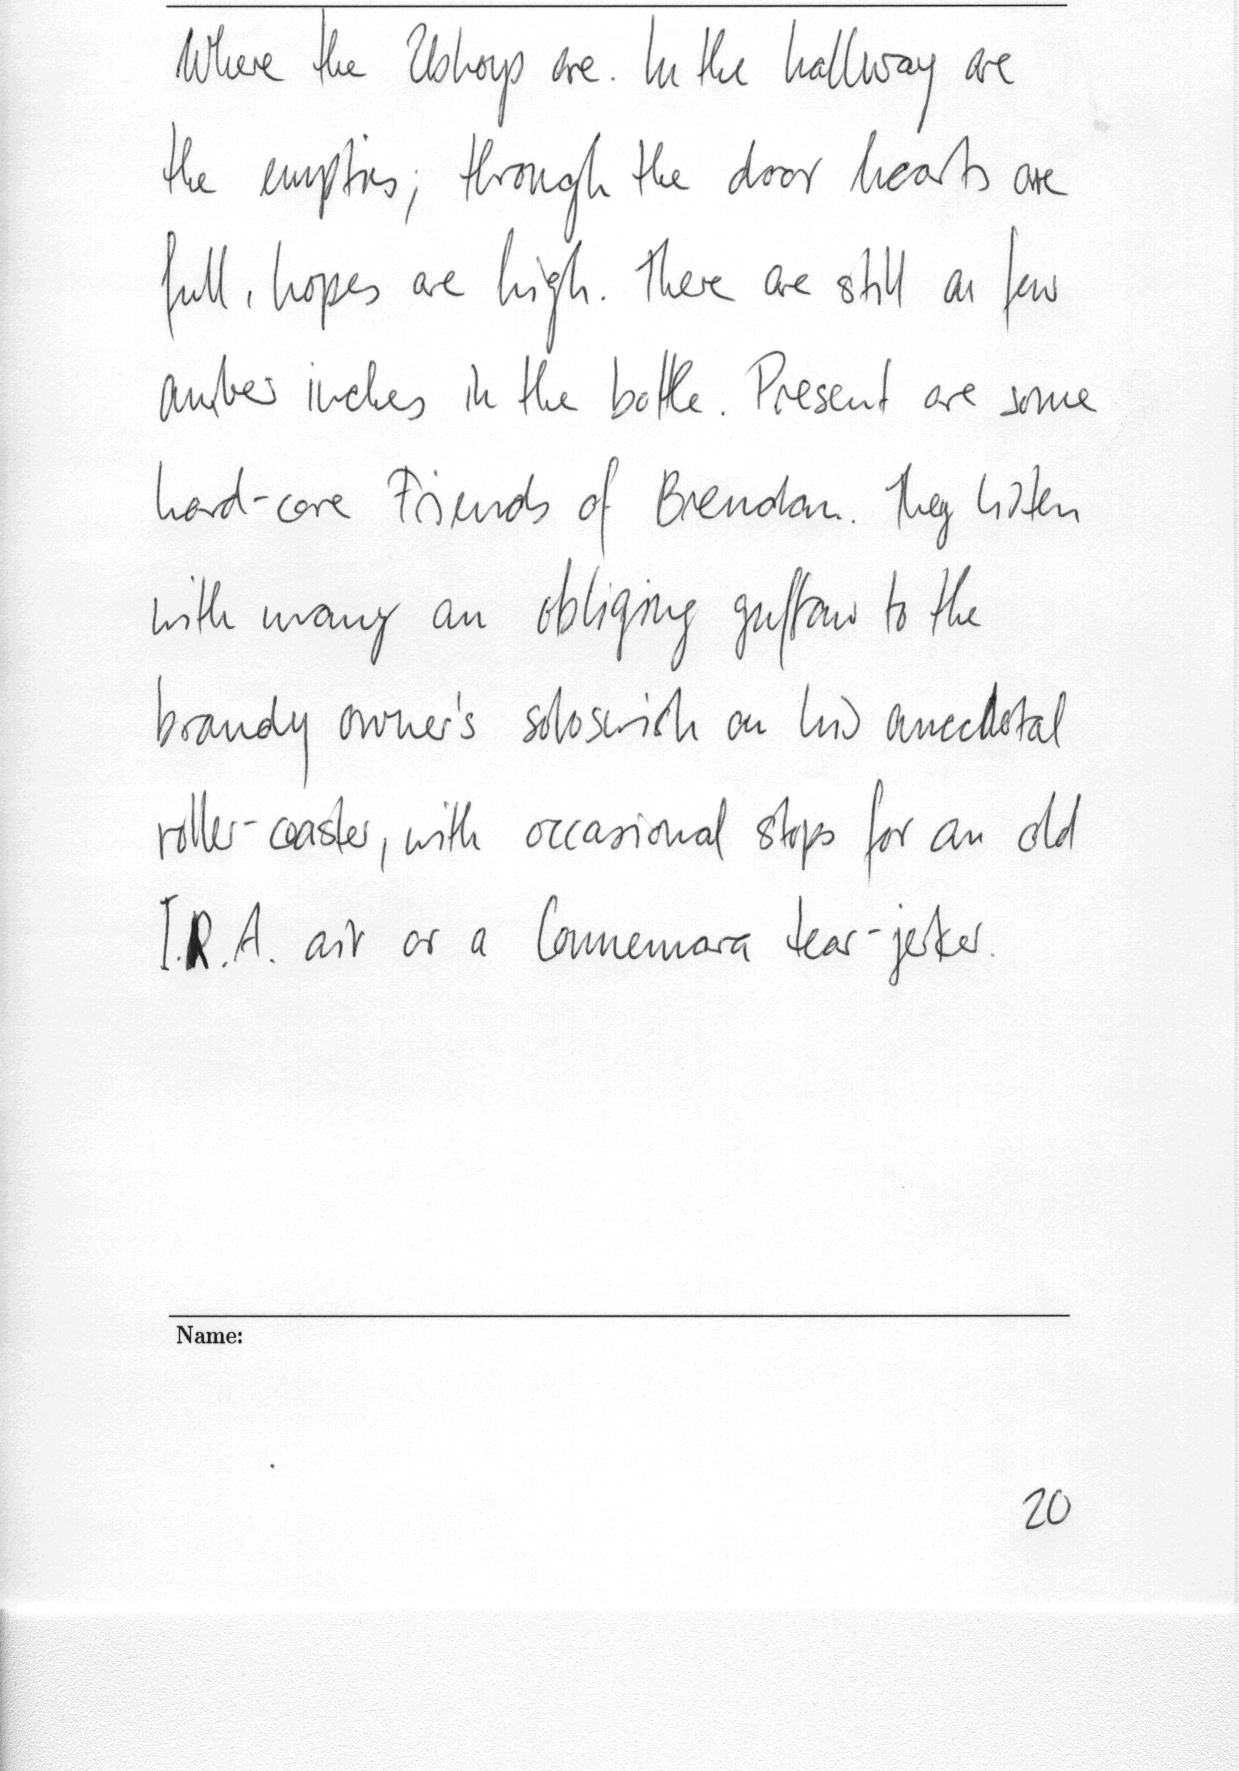 Where the Ubhoys are. In the hallway are
the empties; through the door hearts are
full, hopes are high. There are still a few
amber inches in the bottle. Present are some
hard-core Friends of Brendan. They listen
with many an obliging guffaw to the
brandy owner's on his anecdotal
roller-coaster, with occasional stops for an old
I.R.A. air or a Connemara tear-jerker.
Name:
20